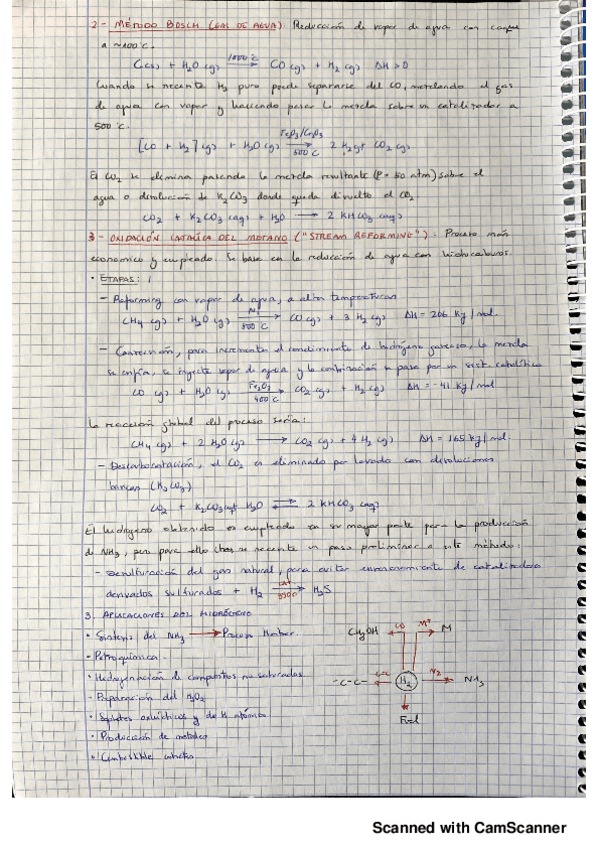 2- MÉTODO BOSCH (GAS DE AGUA) Reducción de vapor de agua con coque
a ~1000°C.
C(s) + H2O(g) 1000°C → CO(g) + H2(g) ΔH>0
Cuando se necesita H2 puro puede separarse del CO, mezclando el gas
de agua con vapor y haciendo pasar la mezcla sobre un catalizador a
500°C.
[CO + H2](g) + H2O(g) Fe2O3/Cr2O3 500°C → 2 H2(g) CO2(g)
El CO2 se elimina pasando la mezcla resultante (P= 50 atm) sobre el
agua o disolución de K2CO3 donde queda disuelto el CO2
CO2 + K2CO3(aq) + H2O → 2 KHCO3(aq)
3- OXIDACIÓN DEL METANO ("STREAM REFORMING"): Proceso más
económico y empleado. Se basa en la reducción de agua con hidrocarburos.
• ETAPAS:
- Reforming con vapor de agua, a altas temperaturas
CH4(g) + H2O(g) Ni 800°C → CO(g) + 3 H2(g) ΔH = 206 KJ/mol.
- Conversión, para incrementar el rendimiento de hidrógeno gaseoso, la mezcla
se enfría, se inyecta vapor de agua y la combinación se pasa por un catalítico
CO(g) + H2O(g) Fe2O3 400°C → CO2(g) + H2(g) ΔH = -41 KJ/mol
La reacción global del proceso sería:
CH4(g) + 2 H2O(g) → CO2(g) + 4 H2(g) ΔH = 165 KJ/mol.
- Descarbonatación, el CO2 es eliminado por lavado con disoluciones
básicas (K2CO3)
CO2 + K2CO3(aq) + H2O ⇌ 2 KHCO3(aq)
El hidrógeno obtenido es empleado en su mayor parte para la producción
de NH3, pero para ello se necesita un paso preliminar a este método:
- Desulfuración del gas natural, para evitar envenenamiento de catalizadores
derivados sulfurados + H2 → H2S
3. APLICACIONES DEL HIDRÓGENO
• Síntesis del NH3 → Proceso Haber.
• Petroquímica
• Hidrogenación de compuestos no saturados
- Preparación del H2O2
• Sopletes oxhídricos y de H atómico
• Producción de metales
• Combustible
CH3OH CO M+ M
-C-C- C=C H2 N2 NH3
Fuel
Scanned with CamScanner